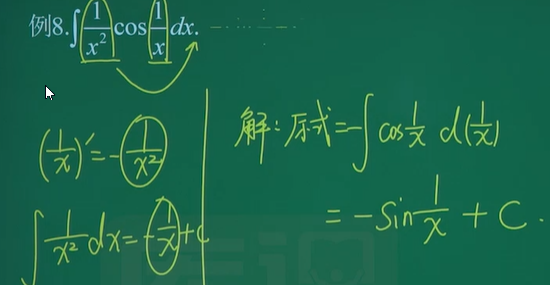 例8.∫ 1/x² cos 1/x dx.
(1/x)′ = -1/x²
∫ 1/x² dx = -1/x + C
解：原式 = -∫ cos 1/x d(1/x)
= -sin 1/x + C.